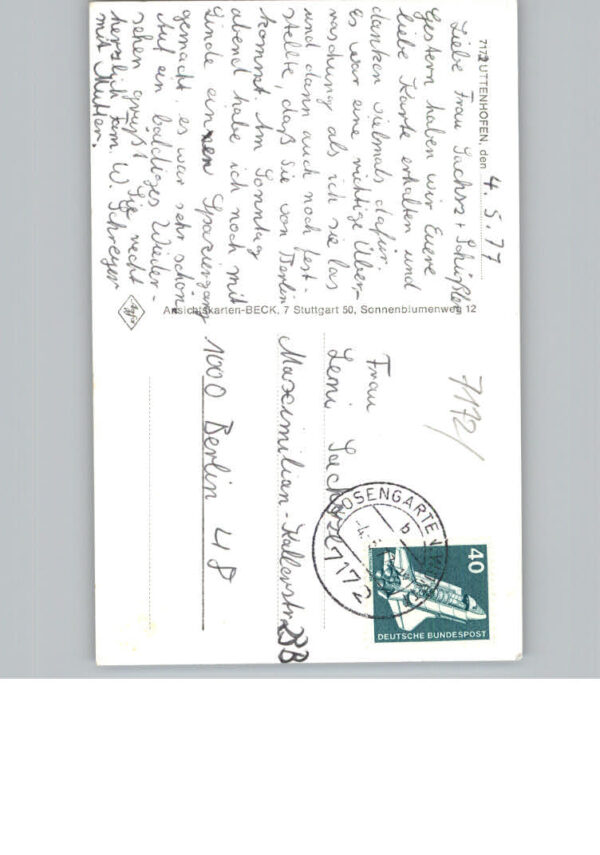 7172 UTTENHOFEN, den 4. 5. 77
Liebe Frau Sachse + Schüßler
Gestern haben wir Euere
liebe Karte erhalten und
danken vielmals dafür.
Es war eine richtige Über-
raschung als ich sie las
und dann auch noch fest-
stellte, daß Sie von Berlin
kommt. Am Sonntag
abend habe ich noch mit
Linde einen Spaziergang
gemacht. es war sehr schön
Auf ein baldiges Wieder-
sehen grüßt Sie recht
herzlich Fam. W. Schreyer
mit Mutter.
Agfa
Ansichtskarten-BECK, 7 Stuttgart 50, Sonnenblumenweg 12
7172/
Frau
Leni Sachse
Maximilian-Kallerstr
1000 Berlin 48
ROSENGARTEN
b
7172
40
DEUTSCHE BUNDESPOST